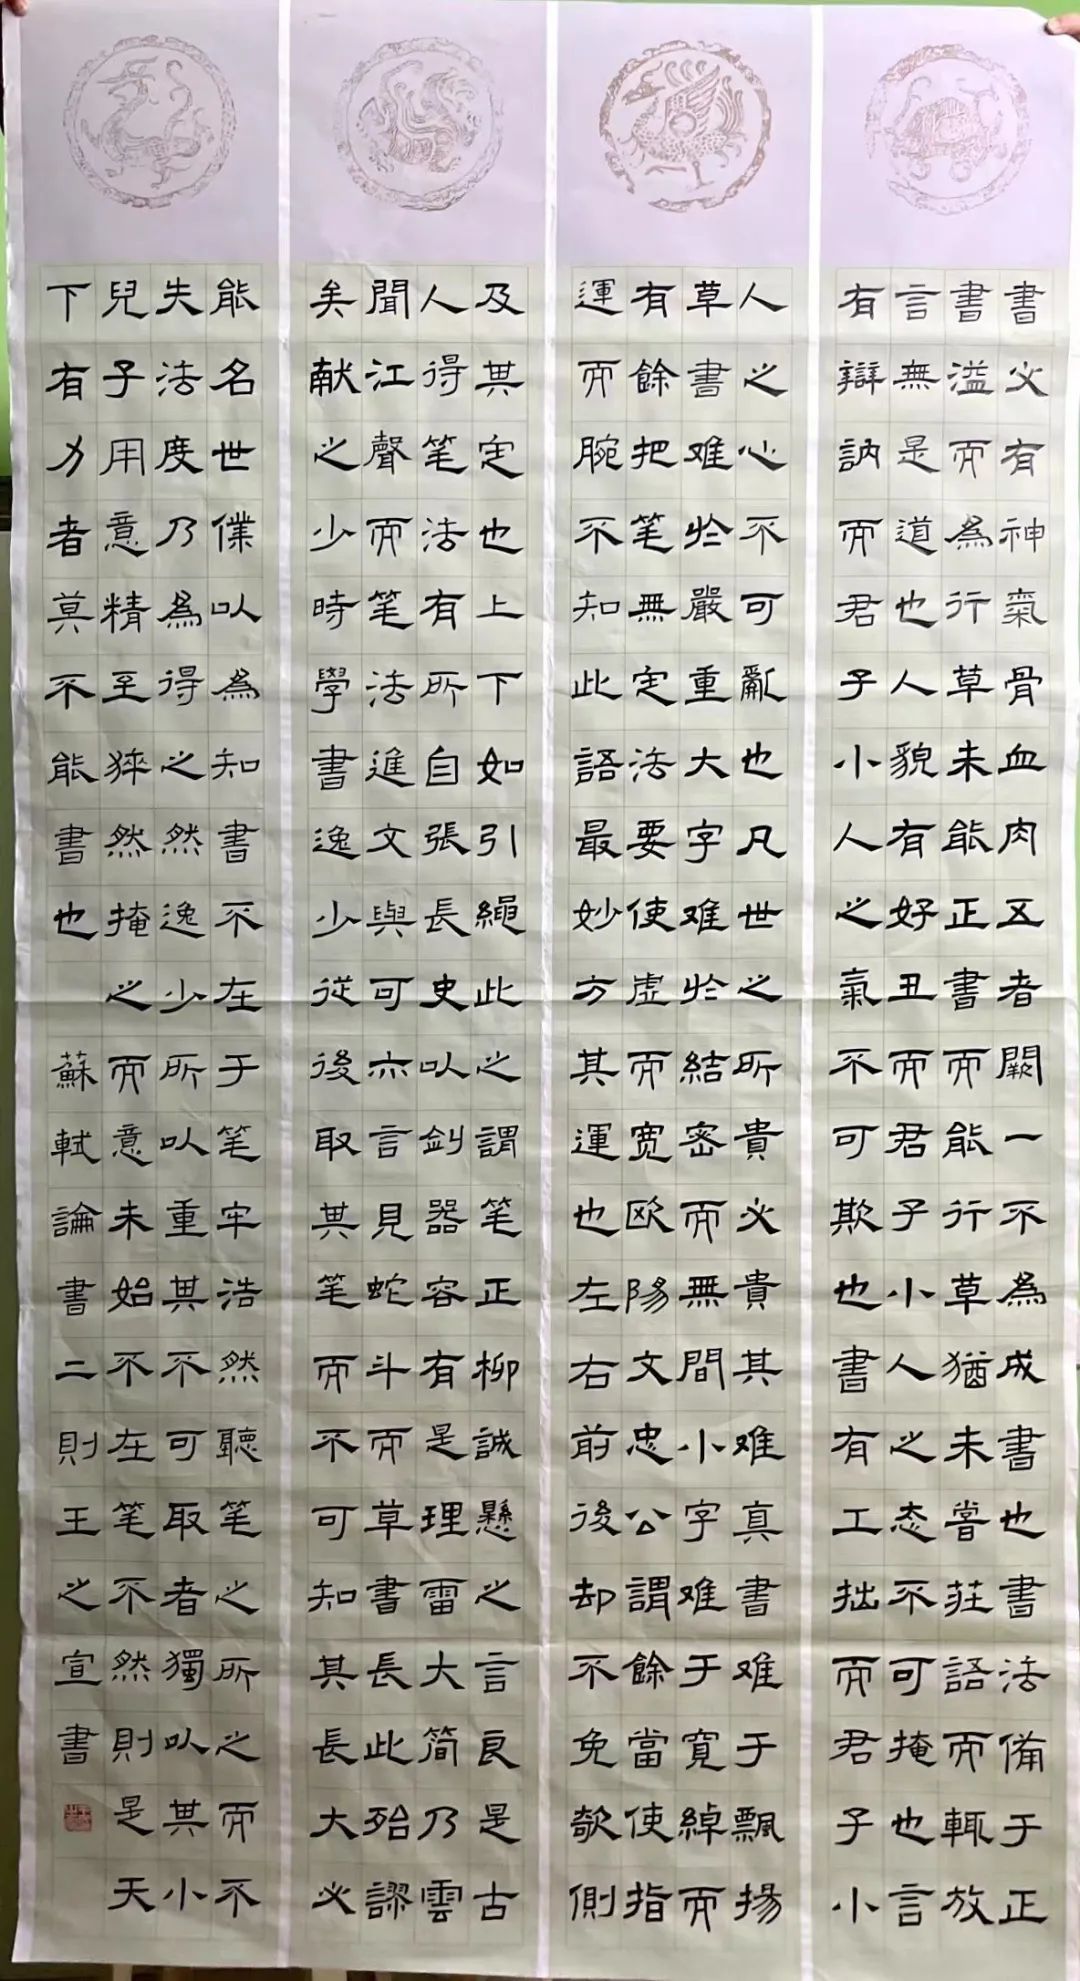 書必有神氣骨血肉五者闕一不為成書也書法備于正
書溢而為行草未能正書而能行草猶未嘗莊語而輒放
言無是道也人貌有好丑而君子小人之态不可掩也言
有辯訥而君子小人之氣不可欺也書有工拙而君子小
人之心不可亂也凡世之所貴必貴其难真書难于飄揚
草書难於嚴重大字难於結密而無間小字难于寬綽而
有餘把笔無定法要使虛而宽欧陽文忠公謂餘當使指
運而腕不知此語最妙方其運也左右前後却不免欹側
及其定也上下如引繩此之謂笔正柳誠懸之言良是古
人得笔法有所自張長史以剑器容有是理雷大简乃雲
聞江聲而笔法進文與可亦言見蛇斗而草書長此殆謬
矣献之少時學書逸少從後取其笔而不可知其長大必
能名世僕以為知書不在于笔牢浩然聽笔之所之而不
失法度乃為得之然逸少所以重其不可取者獨以其小
兒子用意精至猝然掩之而意未始不在笔不然則是天
下有力者莫不能書也 蘇軾論書二則王之宣書